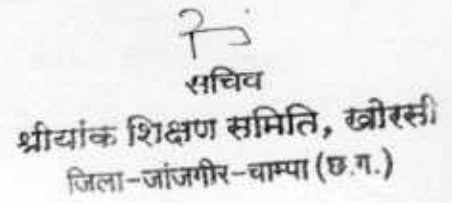 सचिव
श्रीयांक शिक्षण समिति, खोरसी
जिला-जांजगीर-चाम्पा (छ.ग.)